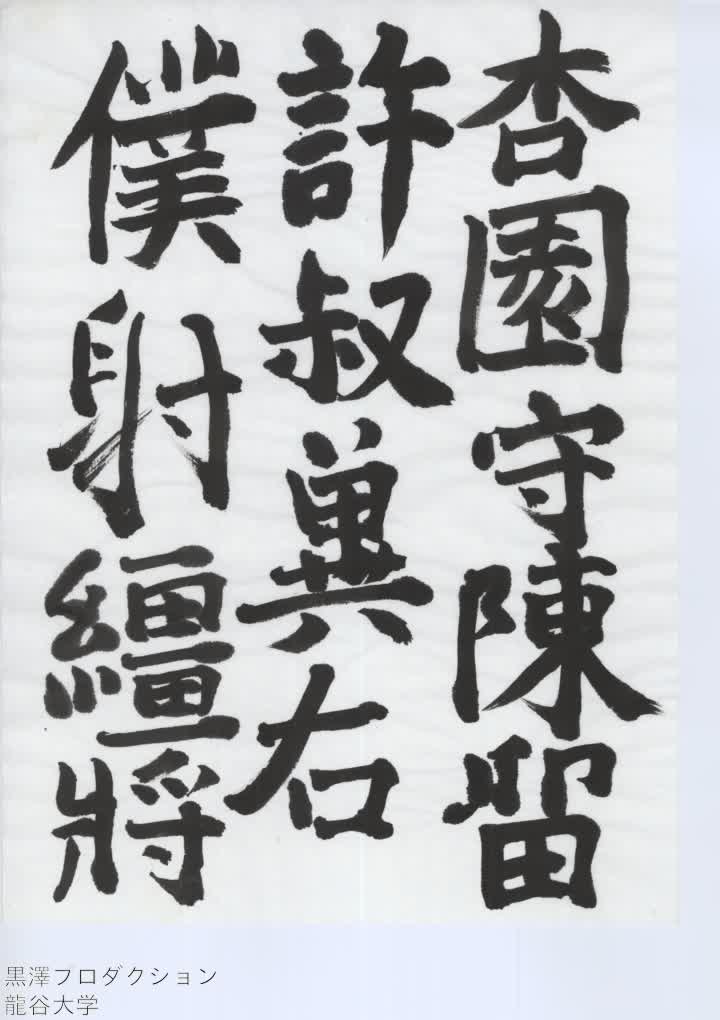 杏園守陳留
許叔冀右
僕射繮將
黒澤プロダクション
龍谷大学